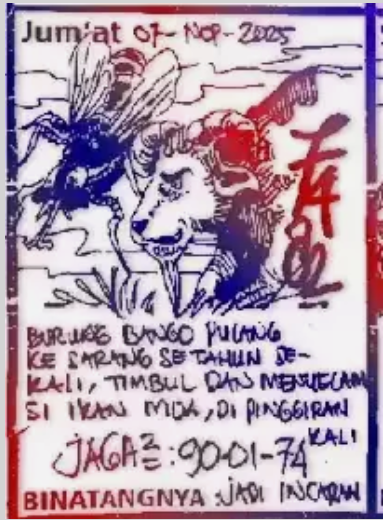 Jum'at 07-NOP-2025
BURUNG BANGO PULANG
KE SARANG SETAHUN SE-
KALI, TIMBUL DAN MENYELAM
SI IKAN MOA, DI PINGGIRAN
KALI
JAGA2=: 90-01-74
BINATANGNYA : JADI INCARAN